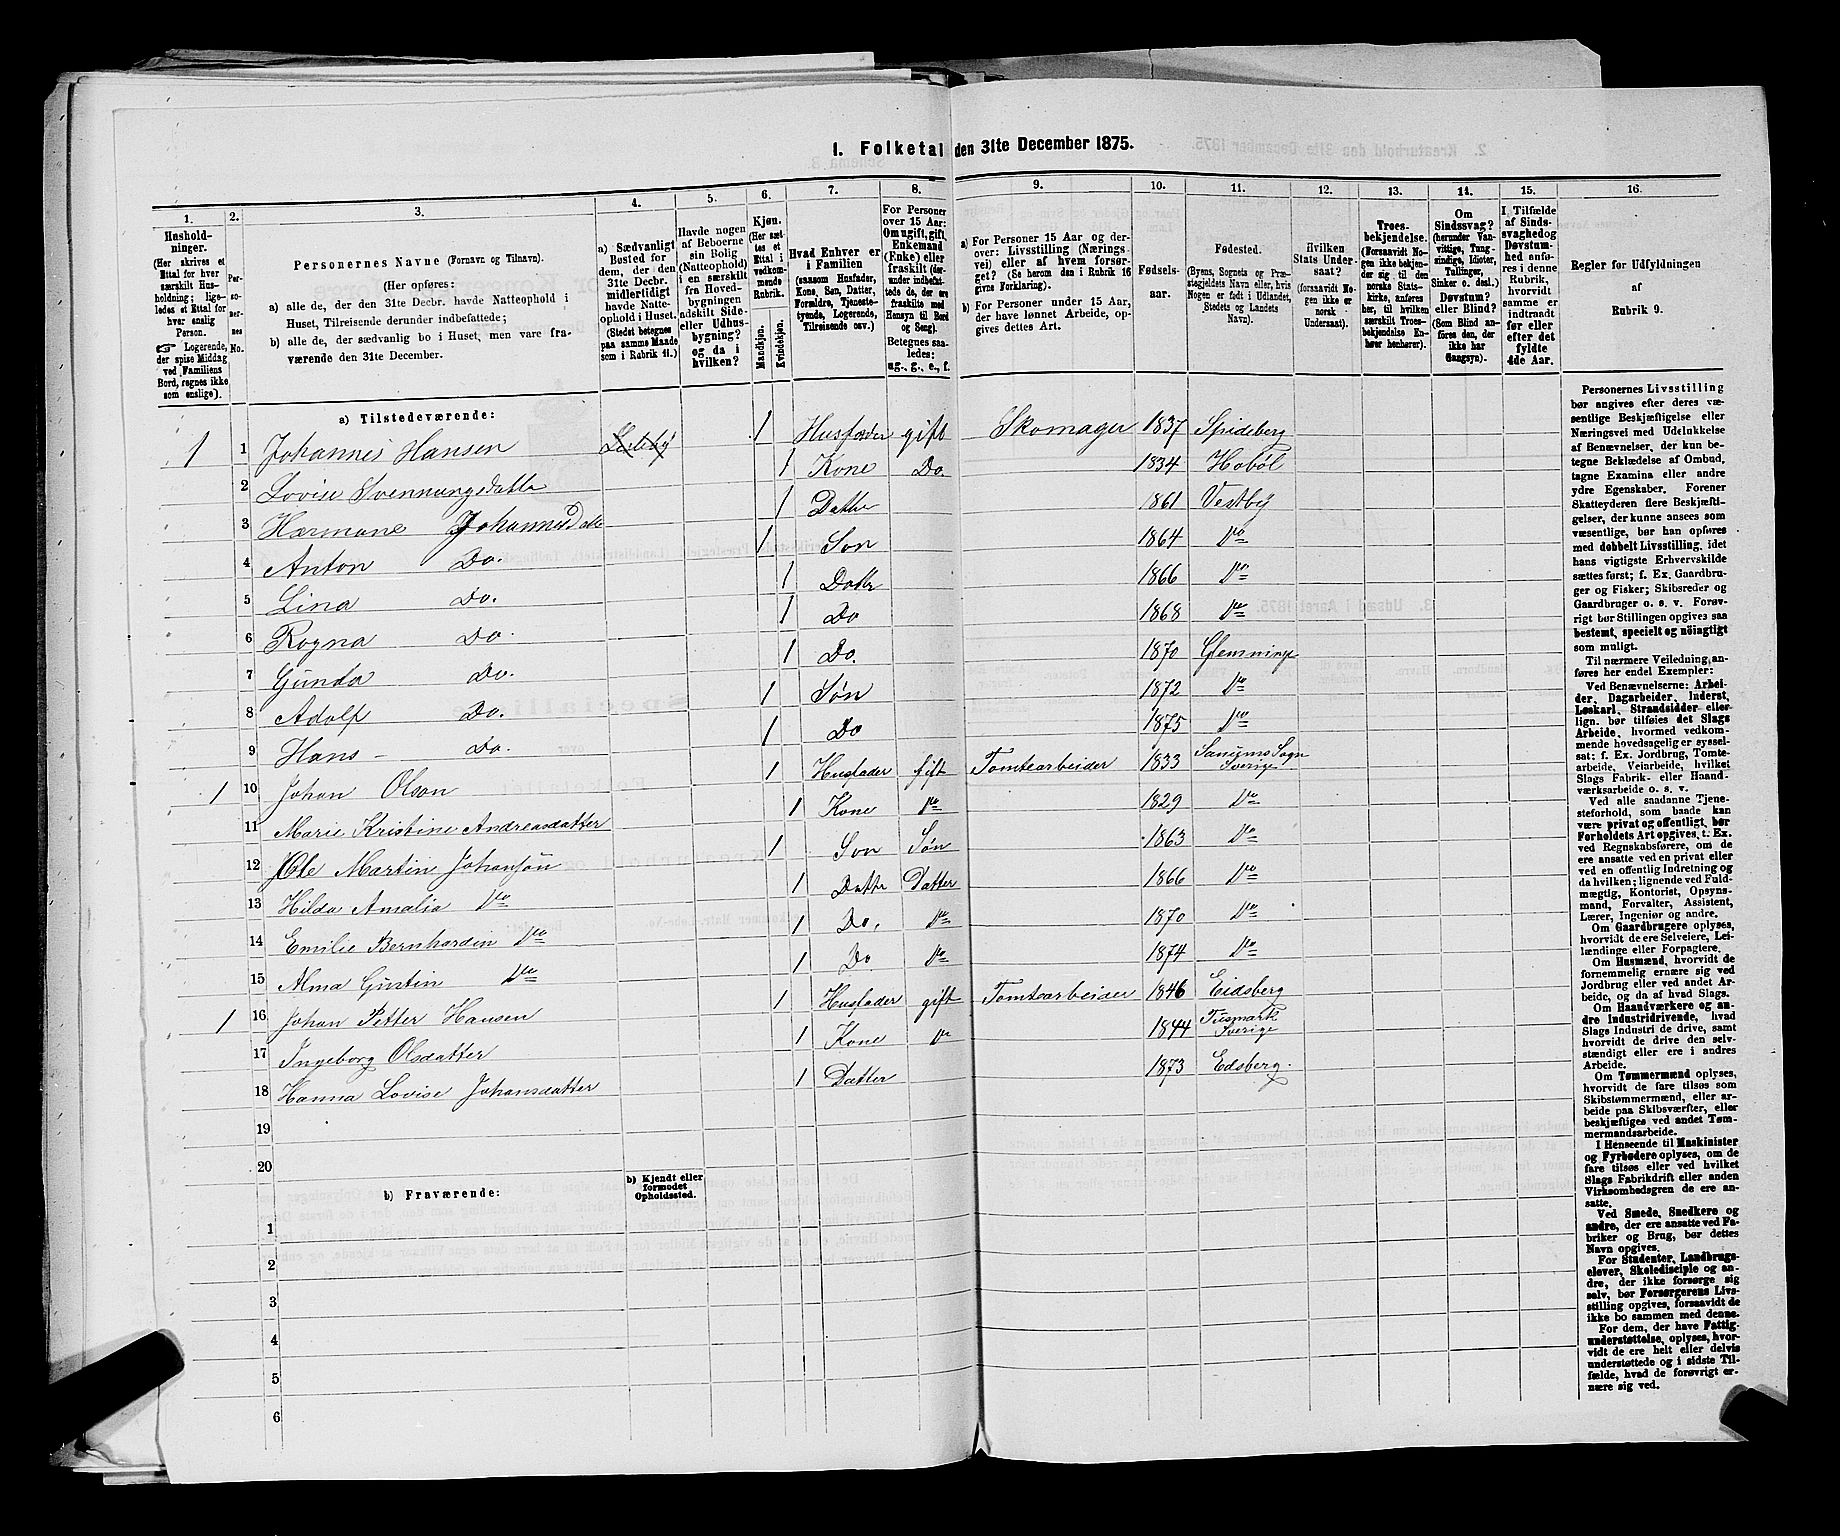 1. Folketal den 31te December 1875.
1.
Husholdninger.
(Her skrives et
Ettal for hver
særskilt Husholdning;
ligeledes et Ettal for
hver enslig
Person.
☞ Logerende,
der spise Middag
ved Familiens
Bord, regnes ikke
som enslige).
2.
Personernes No.
3.
Personernes Navne (Fornavn og Tilnavn).
(Her opføres:
a) alle de, der den 31te Decbr. havde Natteophold i
Huset, Tilreisende derunder indbefattede;
b) alle de, der sædvanlig bo i Huset, men vare fraværende
den 31te December.
4.
a) Sædvanligt
Bosted for
dem, der den
31te Decbr.
midlertidigt
havde Natteophold
i Huset.
(Stedet betegnes
paa samme Maade
som i Rubrik 11.)
5.
Havde nogen
af Beboerne
sin Bolig
(Natteophold)
i en særskilt
fra Hovedbygningen
adskilt Side-
eller Udhusbygning?
og da i
hvilken?
6.
Kjøn.
(Her sættes
et
Ettal i
vedkommende
Rubrik.
Mandkjøn.
Kvindekjøn.
7.
Hvad Enhver er
i Familien
(saasom Husfader,
Kone, Søn, Datter,
Forældre, Tjenestetyende,
Logerende,
Tilreisende osv.)
8.
For Personer
over 15 Aar:
Om ugift, gift,
Enkemand
(Enke) eller
fraskilt (derunder
indbefattede
de, der ere
fraskilte med
Hensyn til Bord
og Seng).
Betegnes saaledes:
ug., g., e., f.
9.
a) For Personer 15 Aar og derover:
Livsstilling (Næringsvei)
eller af hvem forsørget?
(Se herom den i Rubrik 16
givne Forklaring).
b) For Personer under 15 Aar,
der have lønnet Arbeide, opgives
dettes Art.
10.
Fødselsaar.
11.
Fødested.
(Byens, Sognets og Præstegjeldets
Navn eller, hvis
Nogen er født i Udlandet,
Stedets og Landets
Navn).
12.
Hvilken
Stats Undersaat?
(forsaavidt Nogen
ikke er
norsk
Undersaat).
13.
Troesbekjendelse.
(Forsaavidt Nogen
ikke bekjender
sig til den
norske Statskirke,
anføres
her, til hvilken
særskilt Troesbekjendelse
Enhver
henhører).
14.
Om
Sindssvag?
(herunder Vanvittige,
Tungsindige,
Idioter,
Tullinger,
Sinker o. desl.)
Døvstum?
eller Blind?
(Som Blind anføres
den, der
ikke har
Gangsyn).
15.
I Tilfælde
af Sindssvaghed
og
Døvstumhed
anføres
i denne
Rubrik,
hvorvidt
samme er
indtraadt
før eller
efter det
fyldte
4de Aar.
16.
Regler før Udfyldningen
af
Rubrik 9.
a) Tilstedeværende:
1 1 Johannes Hansen 1 Husfader gift Skomager 1837 Spideberg
2 Lovise Svennungsdatte 1 Kone Do 1834 Hobøl
3 Hærmane Johannesd 1 Datte 1861 Vestby
4 Anton Do. 1 Søn 1864 Do
5 Lina Do. 1 Dattr 1866 Do
6 Rogna Do. 1 Do 1868 Do
7 Gunda Do. 1 Do. 1870 Glemminge
8 Adolf Do. 1 Søn 1872 Do
9 Hans - Do. 1 Do 1875 Do
1 10 Johan Olson 1 Husfader gift Tomtearbeider 1833 Sogn Sverige
11 Marie Kristine Andreasdatter 1 Kone Do 1829 Do
12 Ole Martin Johansøn 1 Søn Søn 1863 Do
13 Hilda Amalia Do 1 Datte Datter 1866 Do
14 Emilie Bernhardin Do 1 Do. Do 1870 Do
15 Alma Gustin Do 1 Do Do 1874 Do
1 16 Johan Petter Hansen 1 Husfader gift Tomtearbeider 1846 Eidsberg
17 Ingeborg Olsdatter 1 Kone Do 1844 Sverige
18 Hanna Lovise Johansdatter 1 Datter 1873 Edsberg.
19
20
b) Fraværende:
b) Kjendt eller
formodet
Opholdssted.
1
2
3
4
5
6
Personernes Livsstilling
bør angives efter deres væsentlige
Beskjæftigelse eller
Næringsvei med Udelukkelse
af Benævnelser, der kun betegne
Beklædelse af Ombud,
tagne Examina eller andre
ydre Egenskaber. Forener
Skatteyderen flere Beskjæftigelser,
der kunne ansees som
væsentlige, bør han opføres
med dobbelt Livsstilling, idet
hans vigtigste Erhvervskilde
sættes først; f. Ex. Gaardbruger
og Fisker; Skibsreder og
Gaardbruger o. s. v. Forøvrigt
bør Stillingen opgives saa
bestemt, specielt og nøiagtigt
som muligt.
Til nærmere Veiledning anføres
her endel Exempler:
Ved Benævnelserne: Arbeider,
Dagarbeider, Inderst,
Løskarl, Strandsidder eller
lign. bør tilføies det Slags
Arbeide, hvormed vedkommende
hovedsagelig er sysselsat;
f. Ex. Jordbrug, Tomtearbeide,
Veiarbeide, hvilket
Slags Fabrik- eller Haandværksarbeide
o. s. v.
Ved alle saadanne Tjenesteforhold,
som baade kan
være privat og offentligt, bør
Forholdets Art opgives, t. Ex.
ved Regnskabsførere, om de
ere ansatte ved en privat eller
ved en offentlig Indretning og
da hvilken; lignende ved Fuldmægtig,
Kontorist, Opsynsmand,
Forvalter, Assistent,
Lærer, Ingeniør og andre.
Om Gaardbrugere oplyses,
hvorvidt de ere Selveiere, Leilændinge
eller Forpagtere.
Om Husmænd, hvorvidt de
fornemmelig ernære sig ved
Jordbrug eller ved andet Arbeide,
og da af hvad Slags.
Om Haandværkere og andre
Industridrivende, hvad
Slags Industri de drive, samt
hvorvidt de drive den selvstændigt
eller ere i andres
Arbeide.
Om Tømmermænd oplyses,
hvorvidt de fare tilsøs som
Skibstømmermænd, eller arbeide
paa Skibsværfter, eller
beskjæftiges ved andet Tømmermandsarbeide.
I Henseende til Maskinister
og Fyrbødere oplyses, om de
fare tilsøs eller ved hvilket
Slags Fabrikdrift eller anden
Virksomhedsgren de ere ansatte.
Ved Smede, Snedkere og
andre, der ere ansatte ved Fabriker
og Brug, bør dettes
Navn opgives.
For Studenter, Landbrugselever,
Skoledisciple og andre,
der ikke forsørge sig
selv, bør Forsørgerens Livsstilling
opgives, forsaavidt de
ikke bo sammen med denne.
For dem, der have Fattigunderstøttelse,
oplyses, hvorvidt
de ere helt eller delvis
understøttede og i sidste Tilfælde,
hvad de forøvrigt ernære
sig ved.